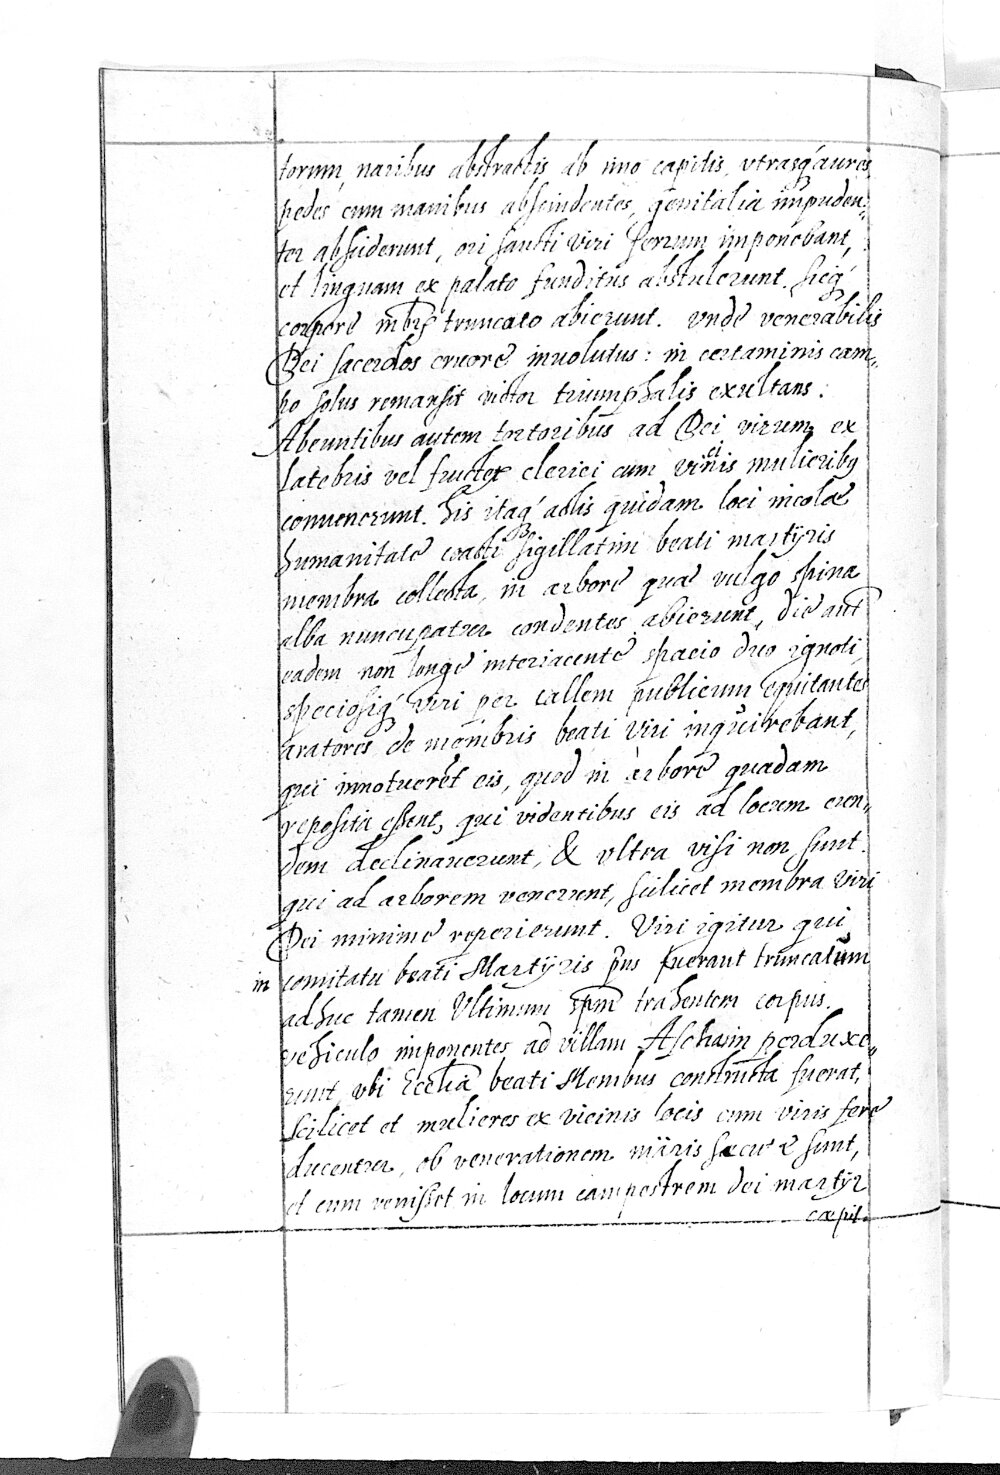 torum, naribus abstractis ab imo capitis, vtrasq́ aures
pedes cum manibus abscindentes, genitalia impuden„
ter absciderunt, ori sancti viri ferrum imponebant,
et linguam ex palato funditus abstulerunt. sicq́
corpore mbris truncato abierunt. vnde venerabilis
Dei sacerdos cruore inuolutus: in certaminis cam„
po solus remansit victor triumphalis exultans:
Abeuntibus autem tortoribus ad Dei virum ex
latebris vel fructex clerici cum vicinis mulieribq
conuenerunt. his itaq́ actis quidam loci incolæ
humanitate coacti sigillatim beati martÿris
membra collecta, in arbore quæ vulgo spina
alba nuncupatur condentes abierunt, die aut
eadem non longe interiacente spacio duo ignoti,
speciosiq́ viri per callem publicum equitantes
aratores de membris beati viri inquirebant,
qui innotueret eis, quod in arbore quadam
reposita essent, qui videntibus eis ad locum eun„
dem declinauerunt, & vltra visi non sunt.
qui ad arborem venerunt, scilicet membra viri
Dei minime reperierunt. Viri igitur qui
in comitatu beati Martÿris prius fuerant truncatum
adhuc tamen Vltimum spm trahentem corpus.
vehiculo imponentes ad villam Ascham perduxe„
runt vbi Ecclia beati Membus constructa fuerat,
scilicet et mulieres ex vicinis locis cum viris fere
ducentur, ob venerationem mÿris secut sunt,
et cum venisset in locum campestrem dei martÿr
cœpit